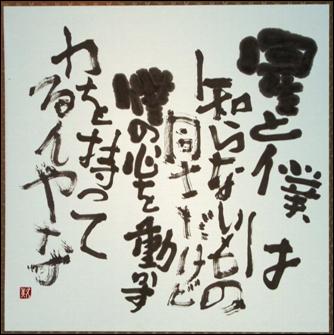 星と僕は
知らないもの
同士だけど
僕の心を動かす
力を持って
るんやなぁ